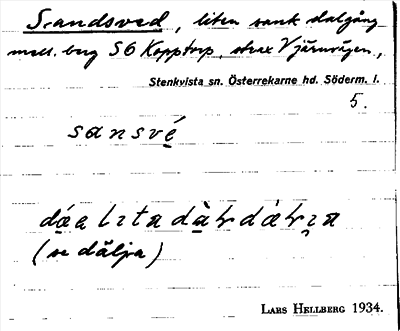 Sandsved, liten sank dalgång
mell. berg SO Kopptorp, strax V järnvägen.,
Stenkvista sn. Österrekarne hd. Söderm. l.
5.
sansvé
(se dälja)
LARS HELLBERG 1934.